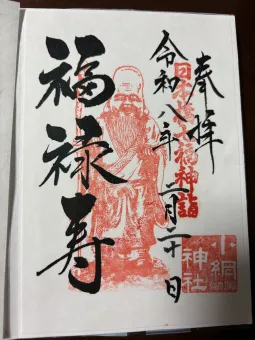 奉拝
日本橋七福神詣
令和八年二月二十日
福禄寿
小網神社